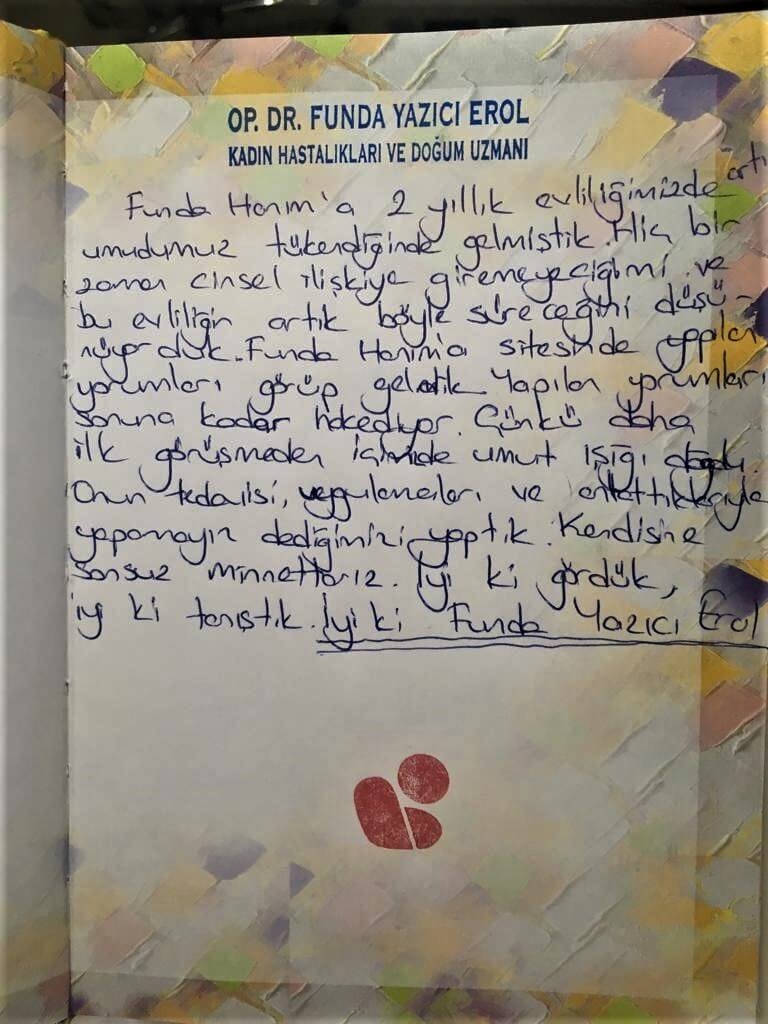 OP. DR. FUNDA YAZICI EROL
KADIN HASTALIKLARI VE DOĞUM UZMANI
Funda Hanım'a 2 yıllık evliliğimizde artı
umudumuz tükendiğinde gelmiştik. Hiç bir
zaman cinsel ilişkiye giremeyeciğimi ve
bu evliliğin artık böyle süreceğini düşü-
nüyorduk. Funda Hanım'a sitesinde yapılan
yorumları görüp geldik. Yapılan yorumları
sonuna kadar hakediyor. Çünkü daha
ilk görüşmeden içimizde umut ışığı doğdu.
Onun tedavisi, uygulamaları ve anlattıklarıyla
yapamayız dediğimizi yaptık. Kendisine
sonsuz minnettarız. İyi ki gördük,
iyi ki tanıştık. İyi ki Funda Yazıcı Erol